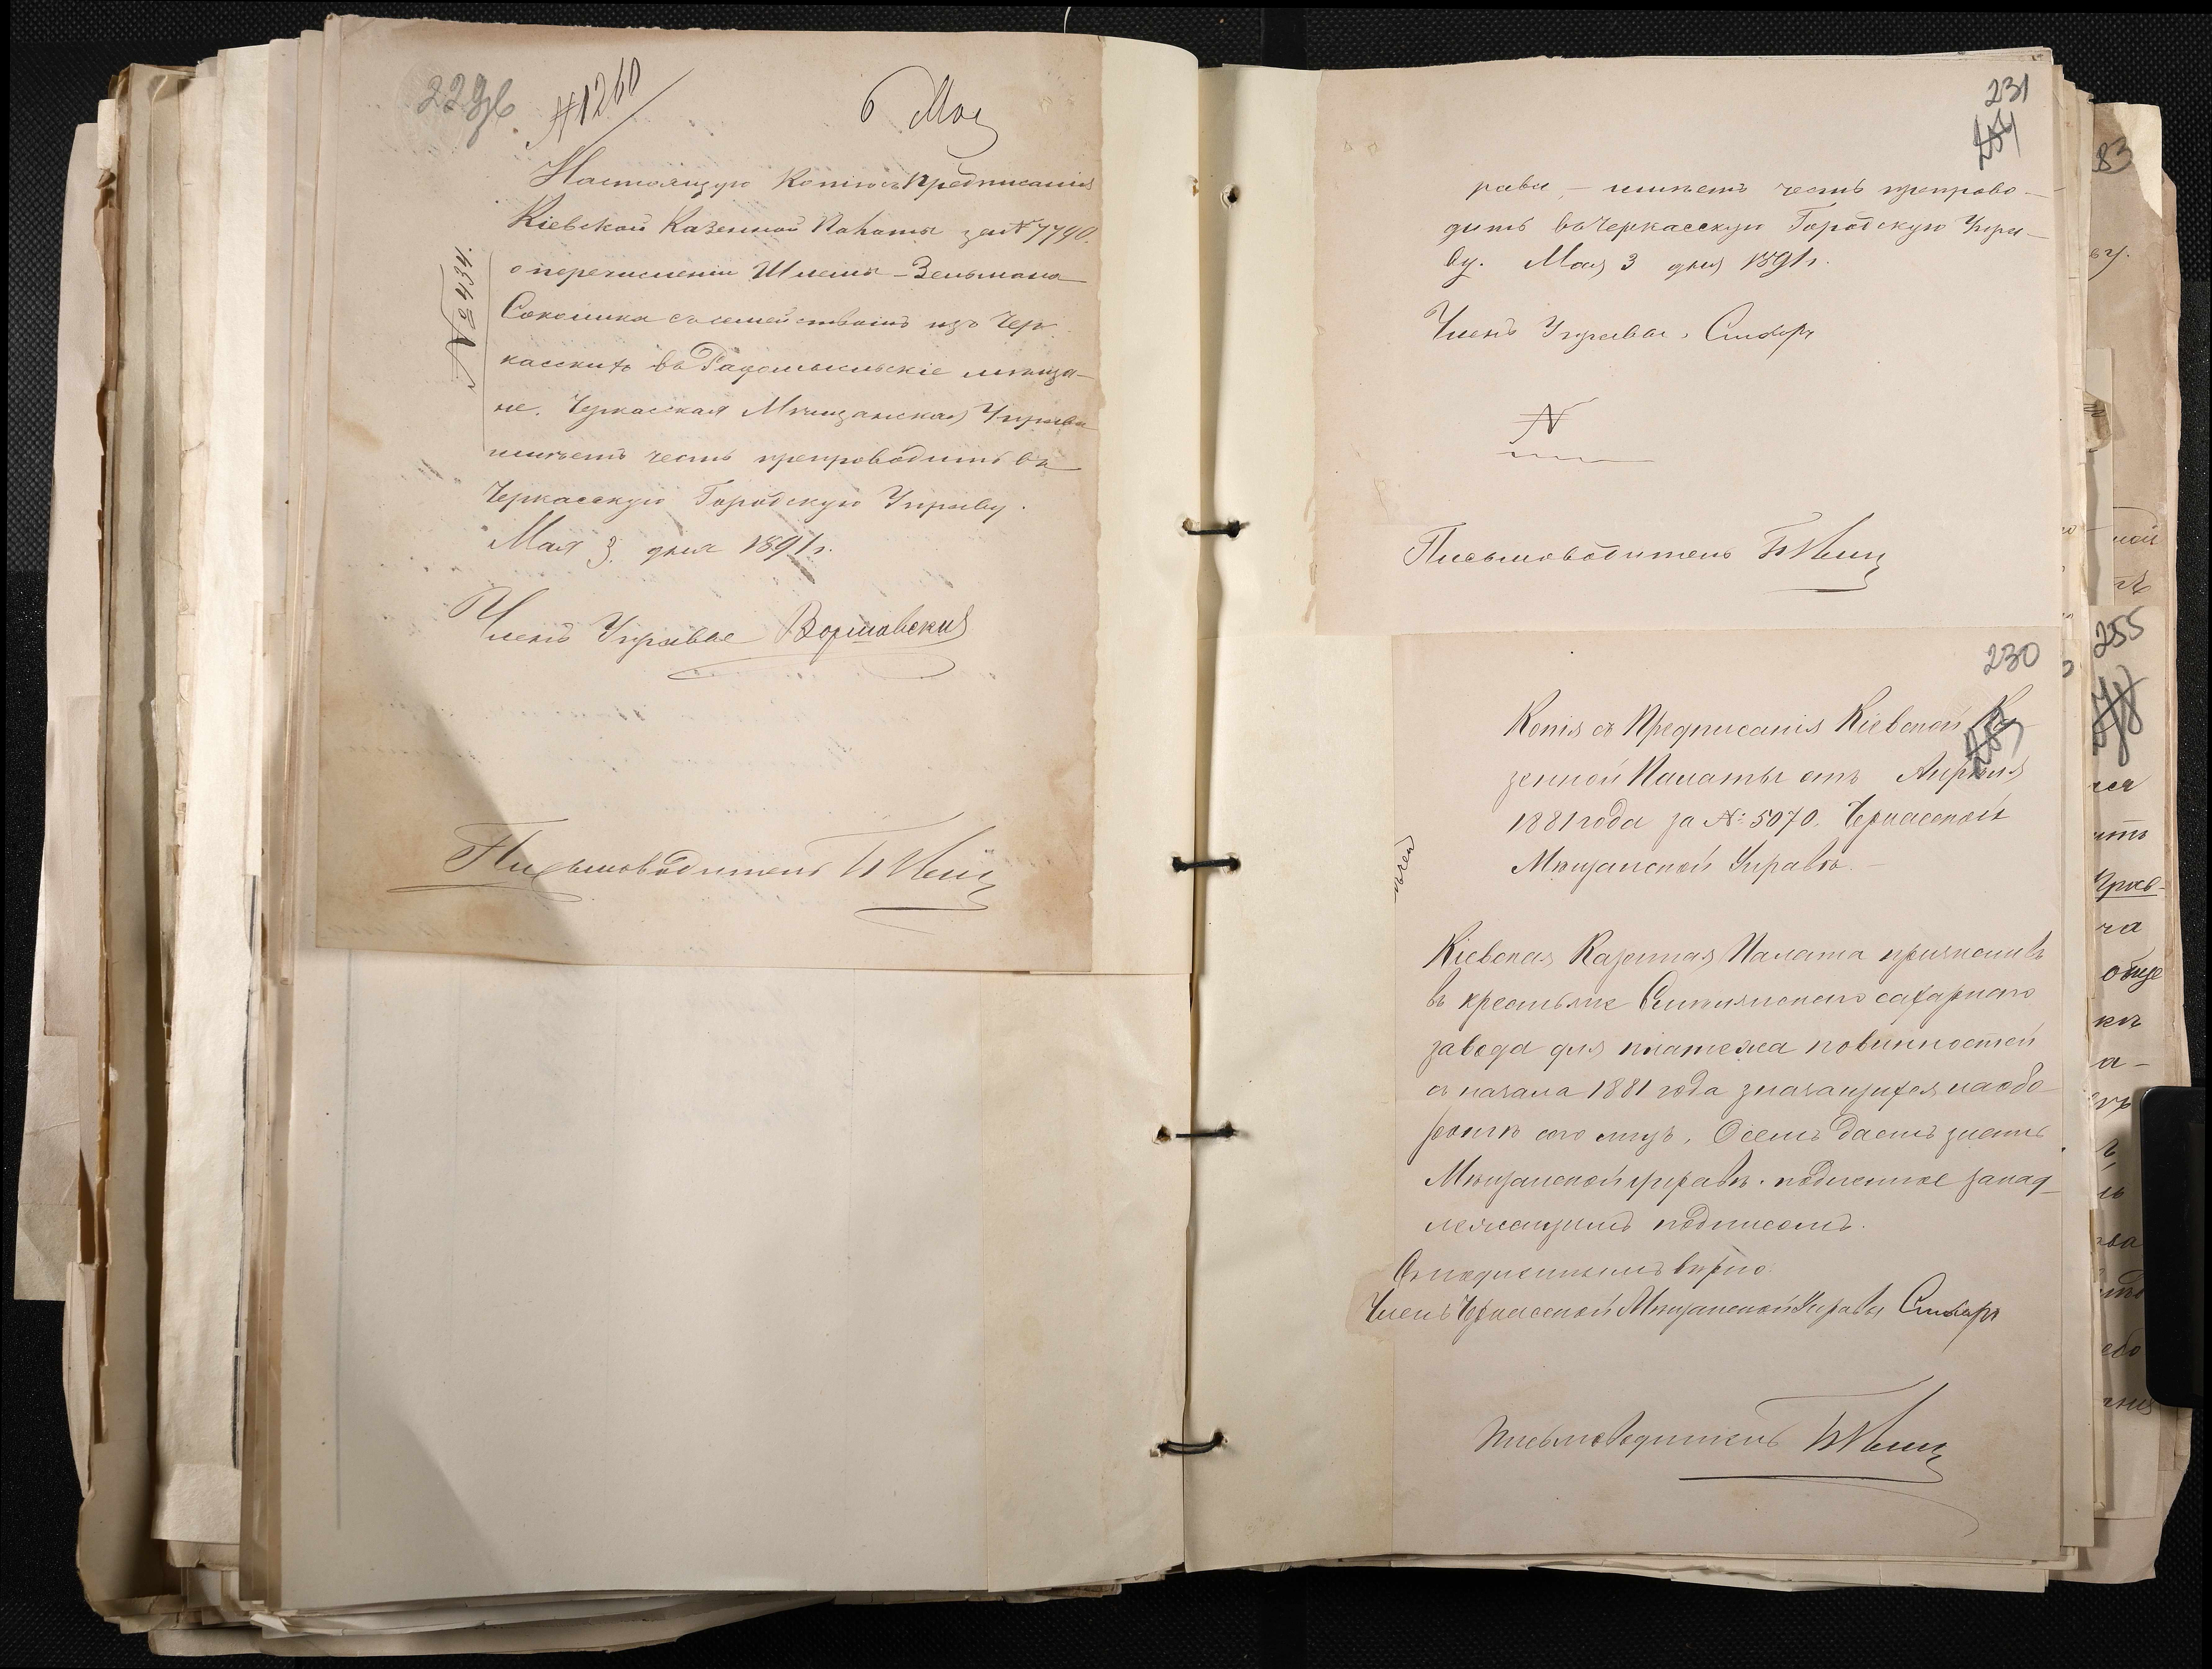 229об
№1260
6 Мая
Настоящую копію съ Предписанія
Кіевской Казенной Палаты за № 7740.
№ 434.
о перечисленіи Шлемы-Зельмана
Соколика съ семействомъ изъ Чер
касскихъ въ Радомысльскіе мѣща-
не. Черкасская Мѣщанская Управа
имѣетъ честь препроводить въ
Черкасскую Городскую Управу.
Мая 3 дня 1891 г.
Членъ Управы Воршавскій
Письмоводитель
231
рава, – имѣетъ честь препрово-
дить въ Черкасскую Городскую Упра-
ву. Мая 3 дня 1891 г.
Членъ Управы
№
Письмоводитель
230
Копія съ Предписанія Кіевской Ка
зенной Палаты отъ Апрѣля
1881 года за №: 5070. Черкасской
Мѣщанской Управѣ.
Кіевская Казенная Палата причисливъ
въ крестьяне сахарнаго
завода для платежа повинностей
съ начала 1881 года значащихся на обо-
ротѣ сего лицъ, О семъ даетъ знать
Мѣщанской управѣ. подленное за над-
лежащимъ подписомъ.
Съ подленнымъ вѣрно:
Членъ Черкасской Мѣщанской Управы
Письмоводитель
83
255